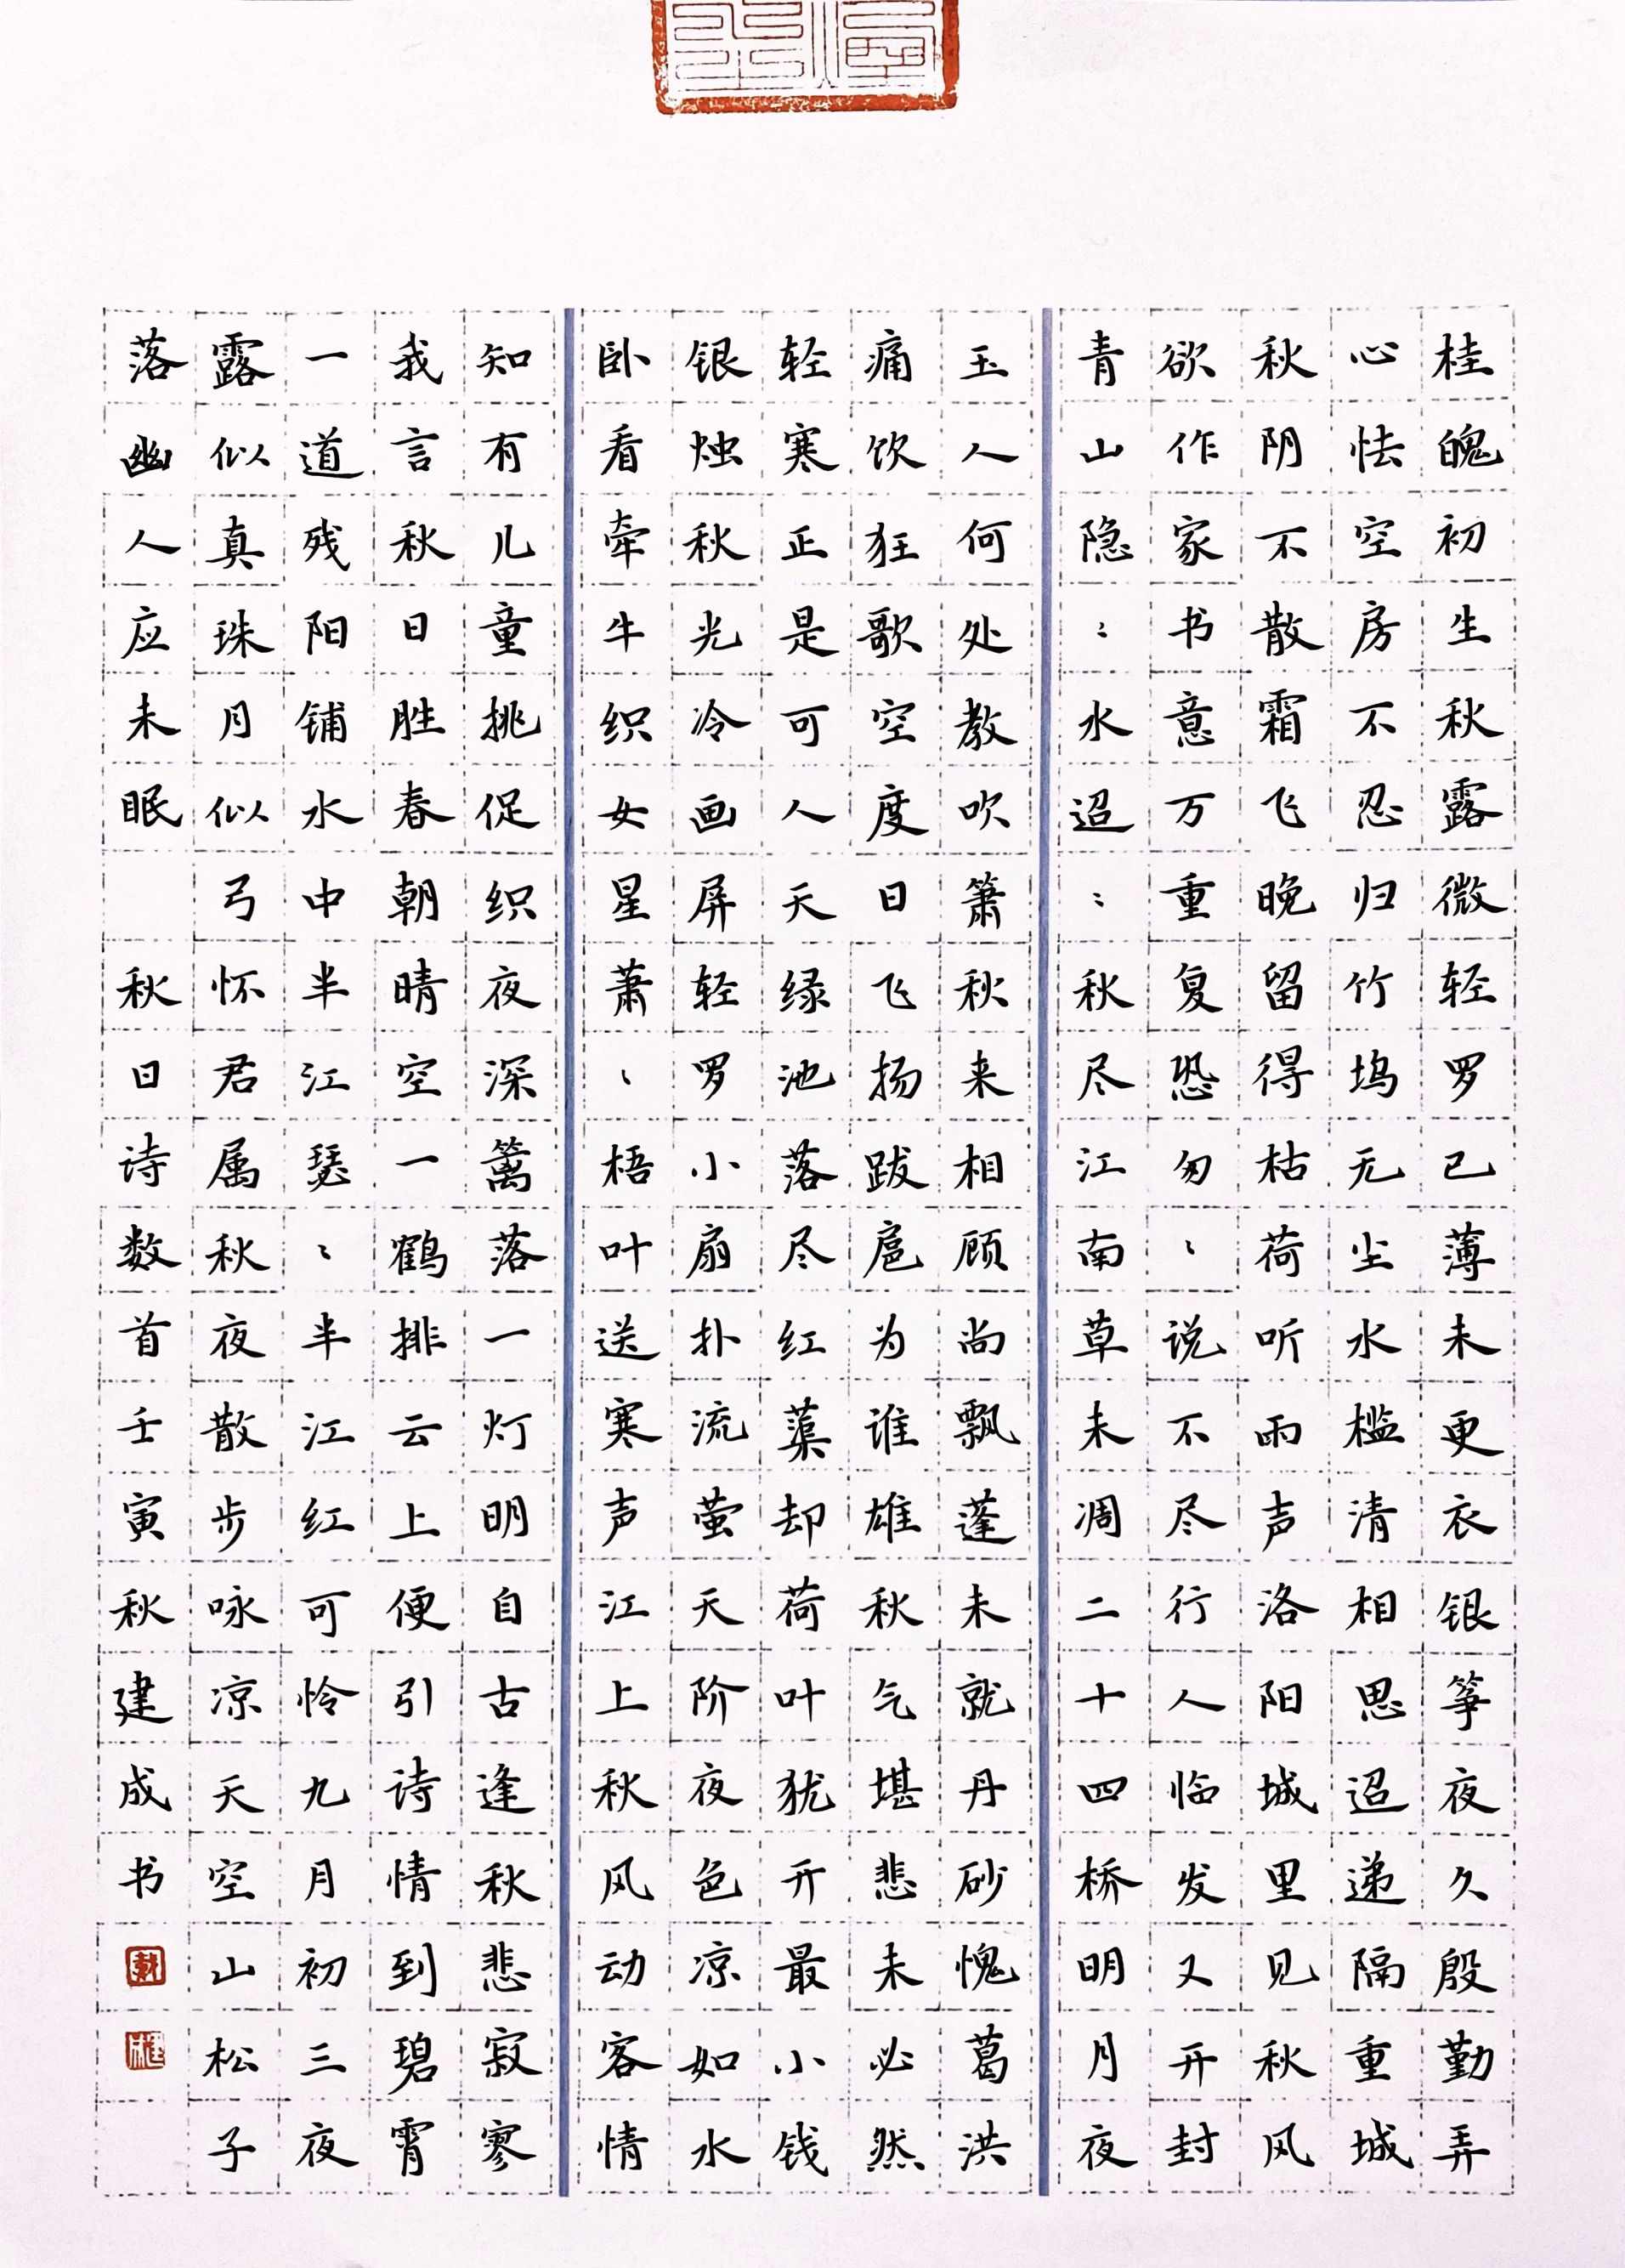 桂魄初生秋露微轻罗已薄未更衣银筝夜久殷勤弄
心怯空房不忍归竹坞无尘水槛清相思迢递隔重城
秋阴不散霜飞晚留得枯荷听雨声洛阳城里见秋风
欲作家书意万重复恐匆〻说不尽行人临发又开封
青山隐〻水迢〻秋尽江南草未凋二十四桥明月夜
玉人何处教吹箫秋来相顾尚飘蓬未就丹砂愧葛洪
痛饮狂歌空度日飞扬跋扈为谁雄秋气堪悲未必然
轻寒正是可人天绿池落尽红蕖却荷叶犹开最小钱
银烛秋光冷画屏轻罗小扇扑流萤天阶夜色凉如水
卧看牵牛织女星萧〻梧叶送寒声江上秋风动客情
知有儿童挑促织夜深篱落一灯明自古逢秋悲寂寥
我言秋日胜春朝晴空一鹤排云上便引诗情到碧霄
一道残阳铺水中半江瑟〻半江红可怜九月初三夜
露似真珠月似弓怀君属秋夜散步咏凉天空山松子
落幽人应未眠 秋日诗数首壬寅秋建成书